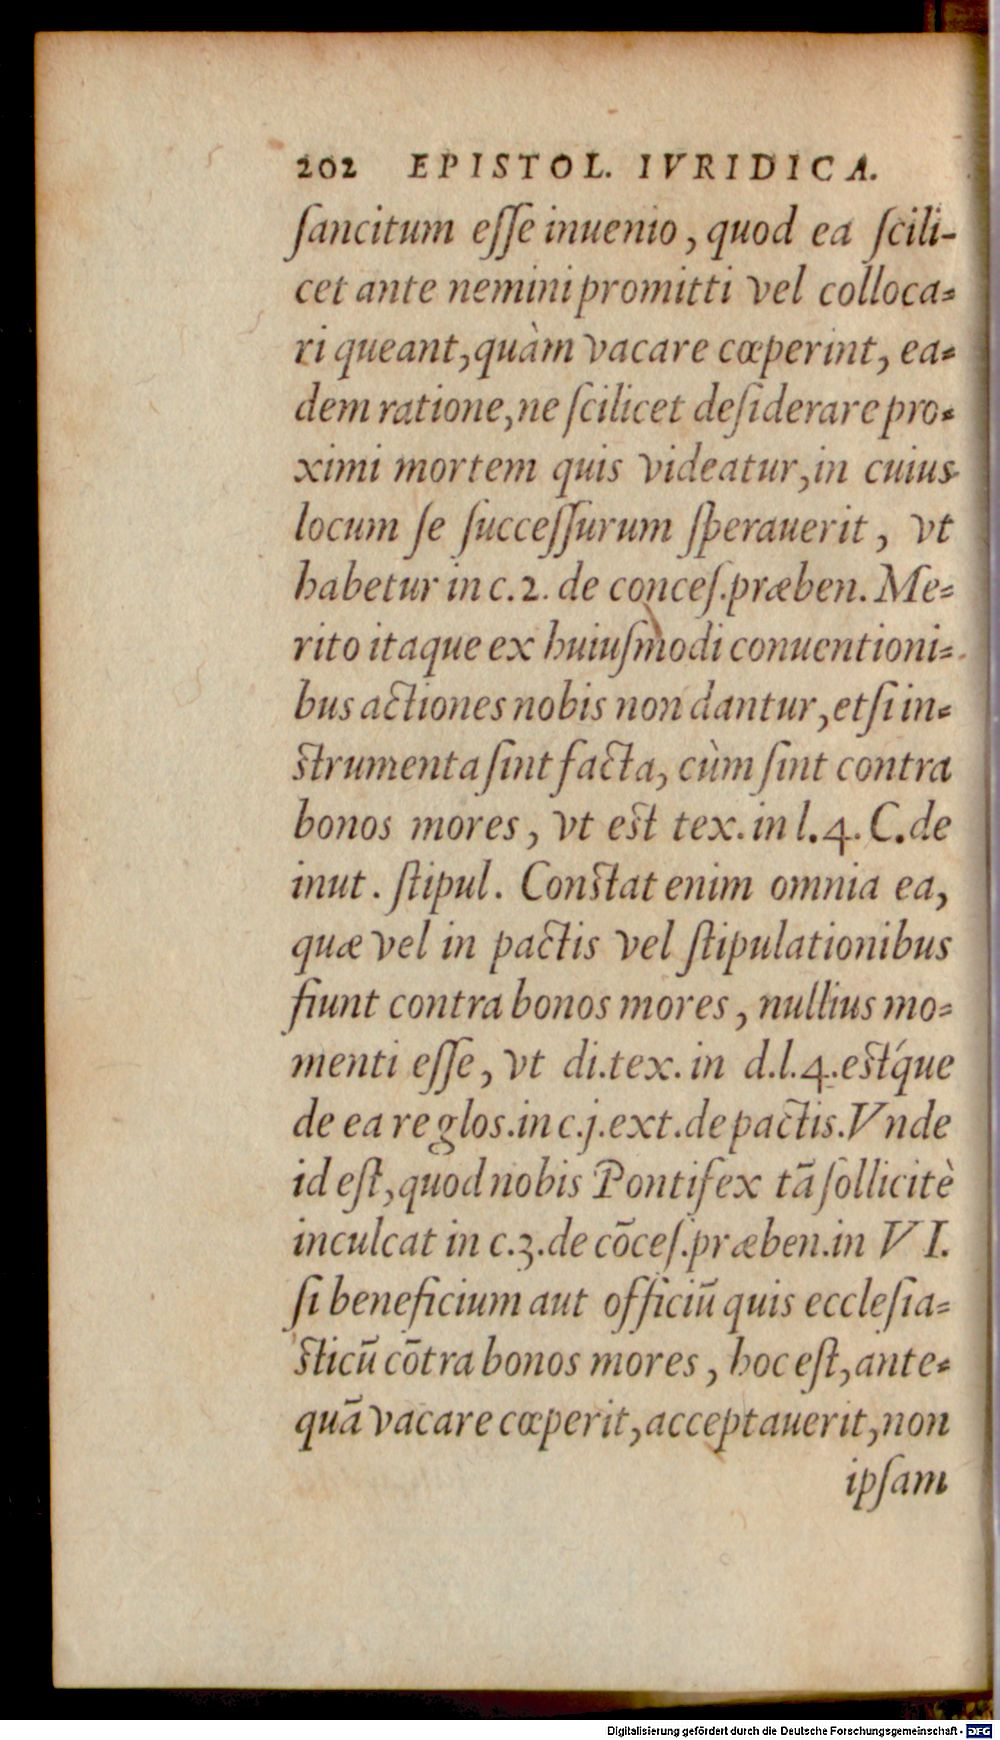 202 EPISTOL. IVRIDICA.
ſancitum eſſe inuenio, quod ea ſcili-
cet ante nemini promitti vel colloca-
ri queant, quàm vacare cœperint, ea-
dem ratione, ne ſcilicet deſiderare pro-
ximi mortem quis videatur, in cuius
locum ſe ſucceſſurum ſperauerit, vt
habetur in c.2. de conceſ.præben. Me-
rito itaque ex huiuſmodi conuentioni-
bus actiones nobis non dantur, etſi in-
ſtrumenta ſint facta, cùm ſint contra
bonos mores, vt eſt tex. in l.4. C. de
inut. ſtipul. Conſtat enim omnia ea,
quæ vel in pactis vel ſtipulationibus
fiunt contra bonos mores, nullius mo-
menti eſſe, vt di.tex. in d.l.4.eſt́que
de ea re glos.in c.j.ext.de pactis.Vnde
id eſt, quod nobis Pontifex tā ſollicitè
inculcat in c.3.de cōceſ.præben.in VI.
ſi beneficium aut officiū quis eccleſia-
ſticū cōtra bonos mores, hoc eſt, ante-
quā vacare cœperit, acceptauerit, non
ipſam
Digitalisierung gefördert durch die Deutsche Forschungsgemeinschaft - DFG